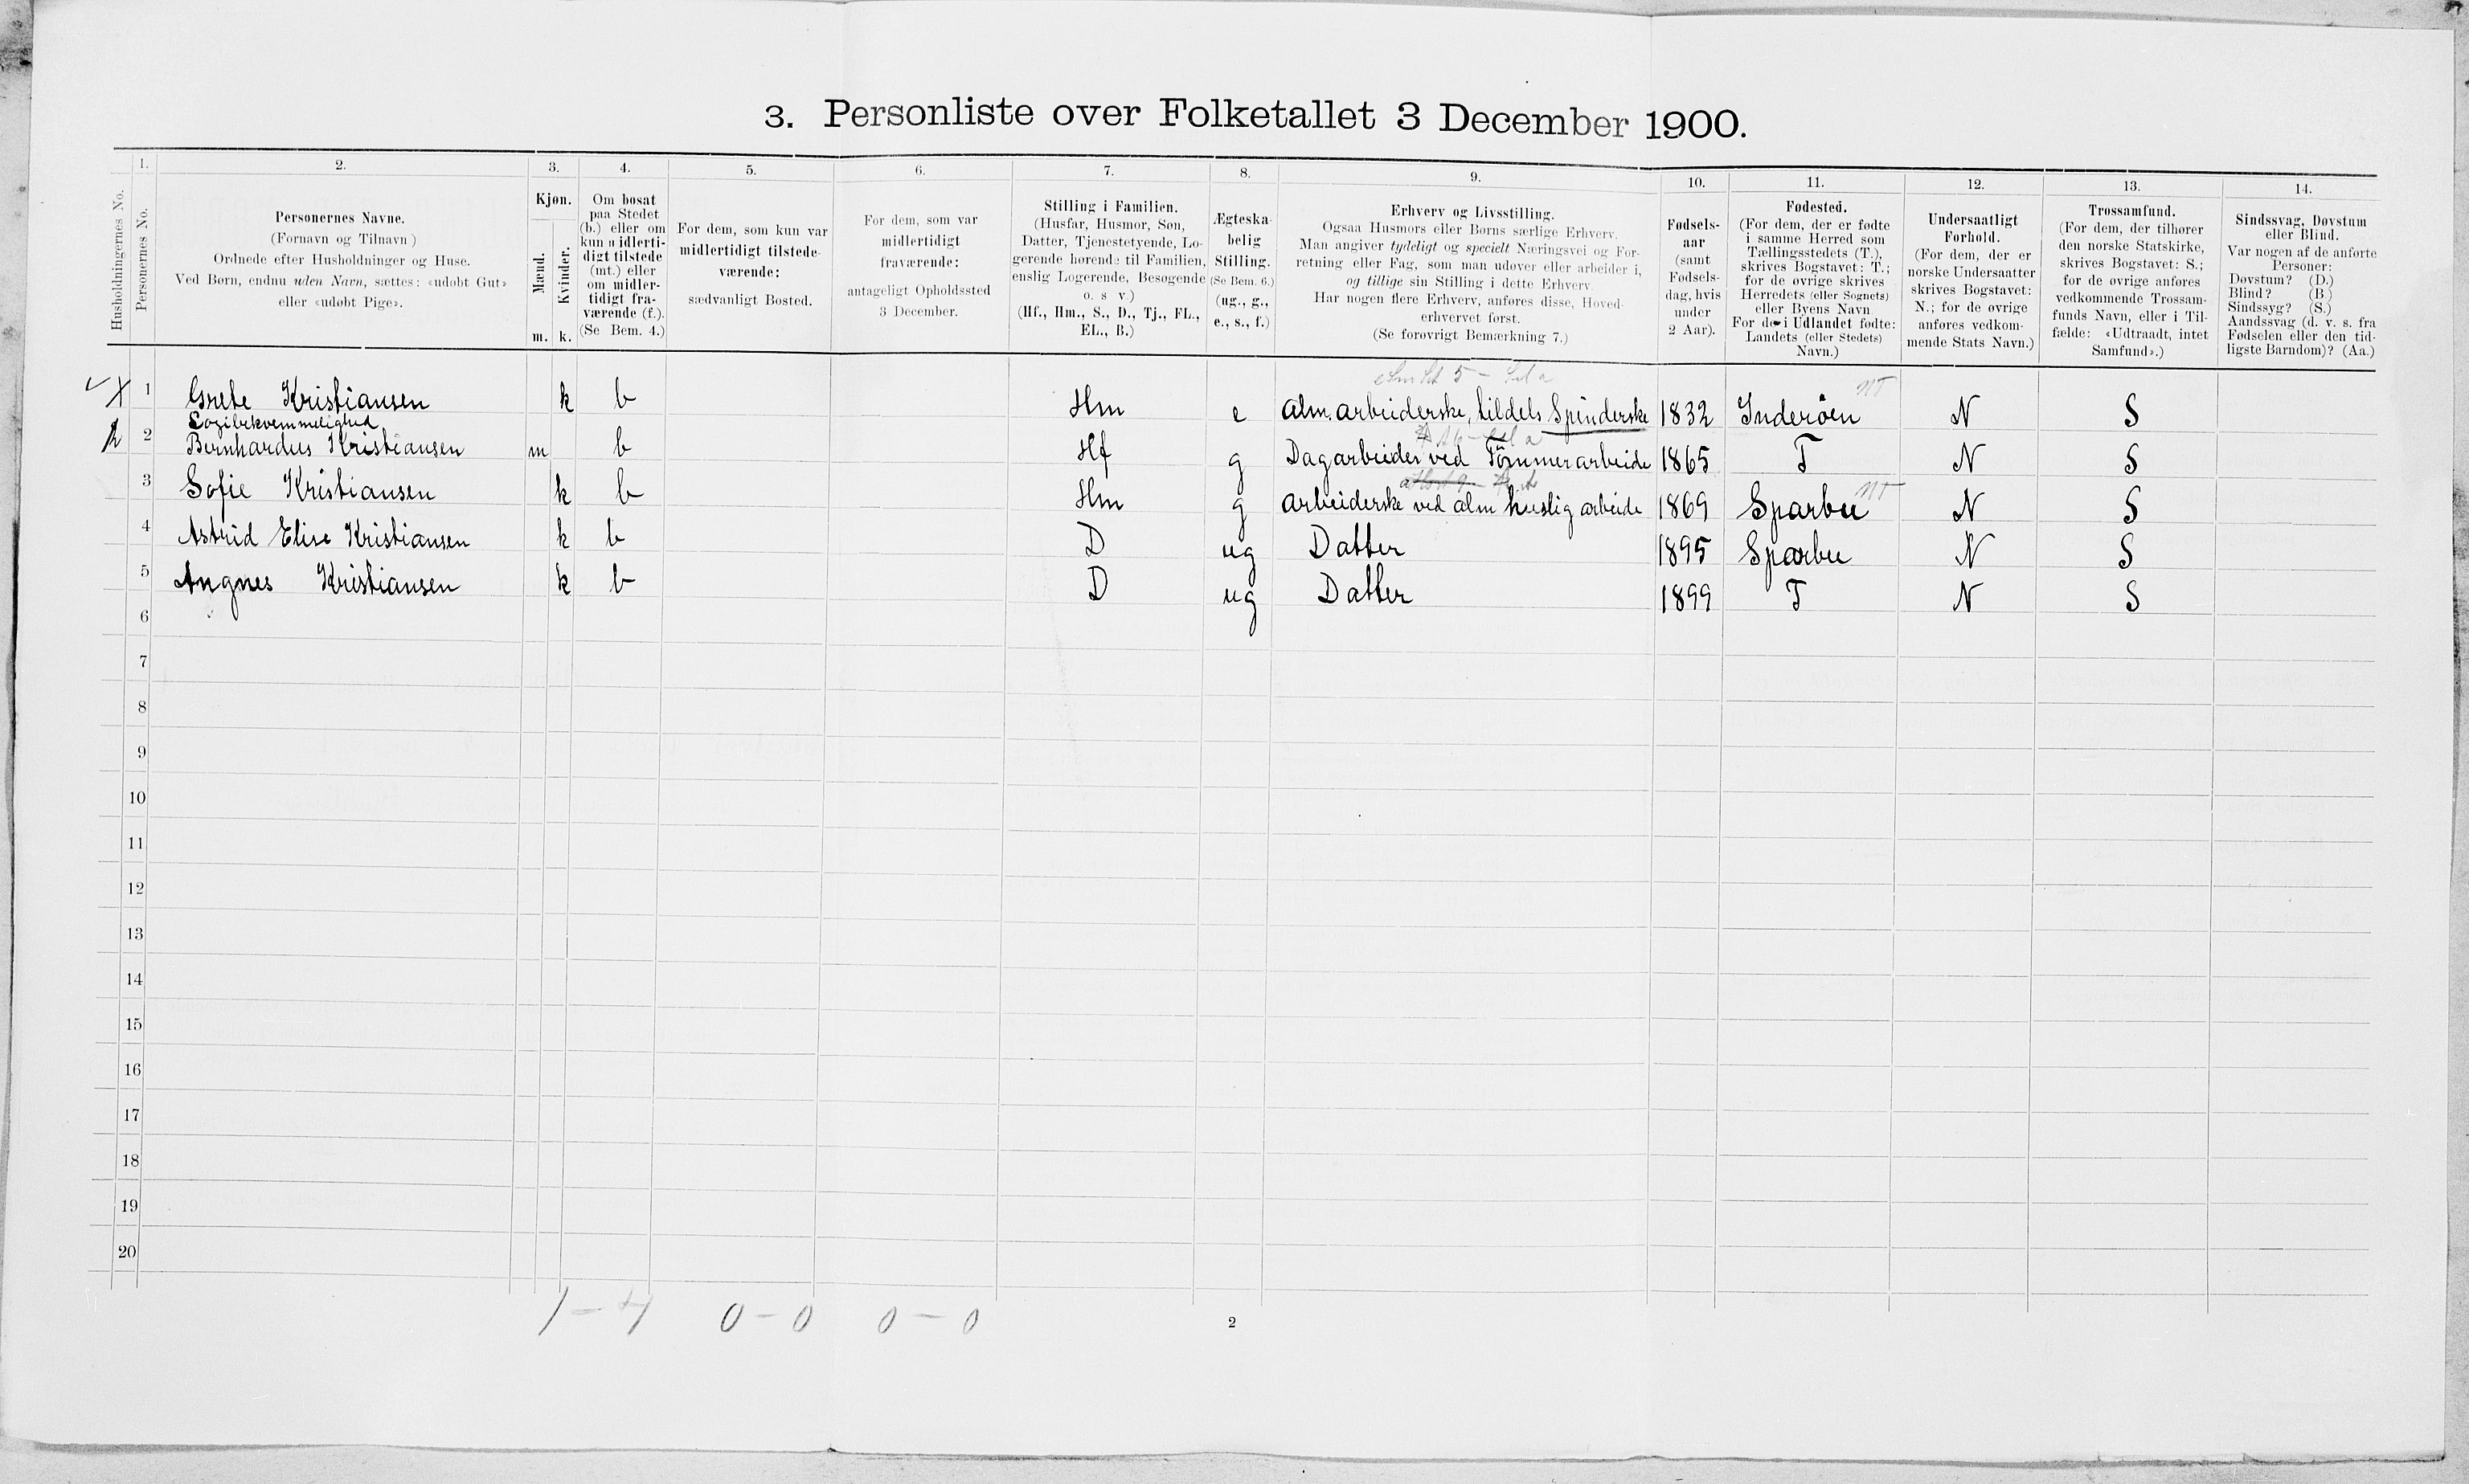 3. Personliste over Folketallet 3 December 1900.
Husholdningernes No.
1.
Personernes No.
2.
Personernes Navne.
(Fornavn og Tilnavn)
Ordnede efter Husholdninger og Huse.
Ved Børn, endnu uden Navn, sættes: «udøbt Gut»
eller «udøbt Pige».
3.
Kjøn.
Mænd.
Kvinder.
m. k.
4.
Om bosat
paa Stedet
(b.) eller om
kun midlerti-
digt tilstede
(mt.) eller
om midler-
tidigt fra-
værende (f.).
(Se Bem. 4.)
5.
For dem, som kun var
midlertidigt tilstede-
værende:
sædvanligt Bosted.
6.
For dem, som var
midlertidigt
fraværende:
antageligt Opholdssted
3 December.
7.
Stilling i Familien.
(Husfar, Husmor, Søn,
Datter, Tjenestetyende, Lo-
gerende hørende til Familien,
enslig Logerende, Besøgende
o. s v.)
(Hf., Hm., S., D., Tj., FL.,
EL., B.)
8.
Ægteska-
belig
Stilling.
(Se Bem. 6.)
(ug., g.,
e., s., f.)
9.
Erhverv og Livsstilling.
Ogsaa Husmors eller Børns særlige Erhverv.
Man angiver tydeligt og specielt Næringsvei og For-
retning eller Fag, som man udøver eller arbeider i,
og tillige sin Stilling i dette Erhverv.
Har nogen flere Erhverv, anføres disse, Hoved-
erhvervet først.
(Se forøvrigt Bemærkning 7.)
10.
Fødsels-
aar
(samt
Fødsels-
dag, hvis
under
2 Aar).
11.
Fødested.
(For dem, der er fødte
i samme Herred som
Tællingsstedets (T.),
skrives Bogstavet: T.;
for de øvrige skrives
Herredets (eller Sognets)
eller Byens Navn
For de i Udlandet fødte:
Landets (eller Stedets)
Navn.)
12.
Undersaatligt
Forhold.
(For dem, der er
norske Undersaatter
skrives Bogstavet:
N.; for de øvrige
anføres vedkom-
mende Stats Navn.)
13.
Trossamfund.
(For dem, der tilhører
den norske Statskirke,
skrives Bogstavet: S.;
for de øvrige anføres
vedkommende Trossam-
funds Navn, eller i Til-
fælde: «Udtraadt, intet
Samfund».)
14.
Sindssvag, Døvstum
eller Blind.
Var nogen af de anførte
Personer:
Døvstum? (D.)
Blind? (B.)
Sindssyg? (S.)
Aandssvag (d. v. s. fra
Fødselen eller den tid-
ligste Barndom)? (Aa.)
1 Grete Kristiansen k b Hm e Alm. arbeiderske, tildels Spinderske 1832 Inderöen NT N S
Logibekvemmelighed
2 Bernhardus Kristiansen m b Hf g Dagarbeider ved Tömmerarbeide 1865 T N S
3 Sofie Kristiansen k b Hm g arbeiderske ved alm huslig arbeide 1869 Sparbu NT N S
4 Astrid Elise Kristiansen k b D ug Datter 1895 Sparbu N S
5 Angnes Kristiansen k b D ug Datter 1899 T N S
6
7
8
9
10
11
12
13
14
15
16
17
18
19
20
1 - 4 0 - 0 0 - 0
2